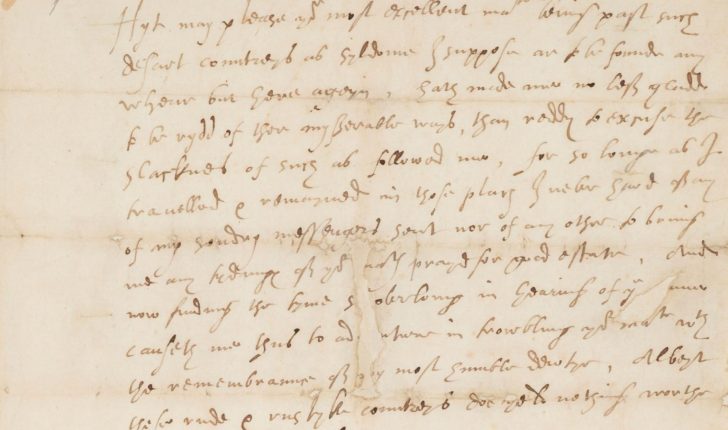 Hyt may please yr most excellent matie being past such
desart countreys as syldome I suppose are to be founde any
wheare but here ageyn, hath made me no less gladd
to be rydd of there myserable ways, than reddy to excuse the
slacknes of such as followed me, for so longe as I
travelled & remayned in those places I never hard of any
of my sondry messengers sent nor of any other to bring
me any tydings of yr prayed for good estate, And
now finding the tyme overlong in hearing of
causeth me thus to in trowbling yr wth
the remembrance of my most humble dewtye, Albeyt
these rude & rustyke countreys doe yeld nothing worthe